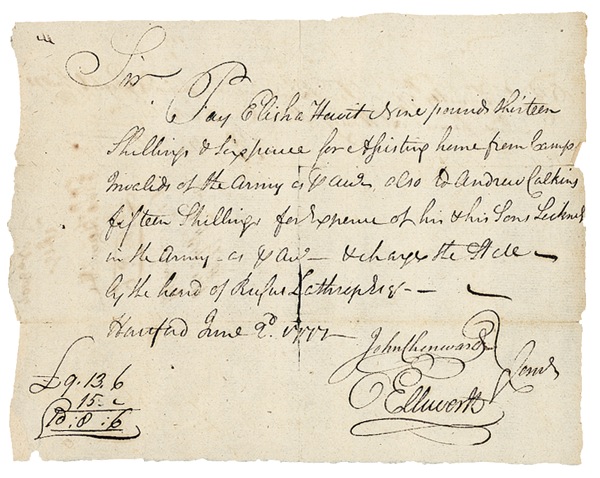 Sir
Pay Elisha Hewit Nine pounds thirteen
Shillings & Sixpence for Assisting home from Camp
Invalids of the Army as ℔ acct also to Andrew Calkins
fifteen Shillings for Expence of his & his Sons Sickness
in the Army - as ℔ acct - & charge the State
by the hand of Rufus Lathrop Esqr -
Hartford June 2d 1777
John Chenward
Ellsworth
Comte
£9.13.6
15..
10:8:6